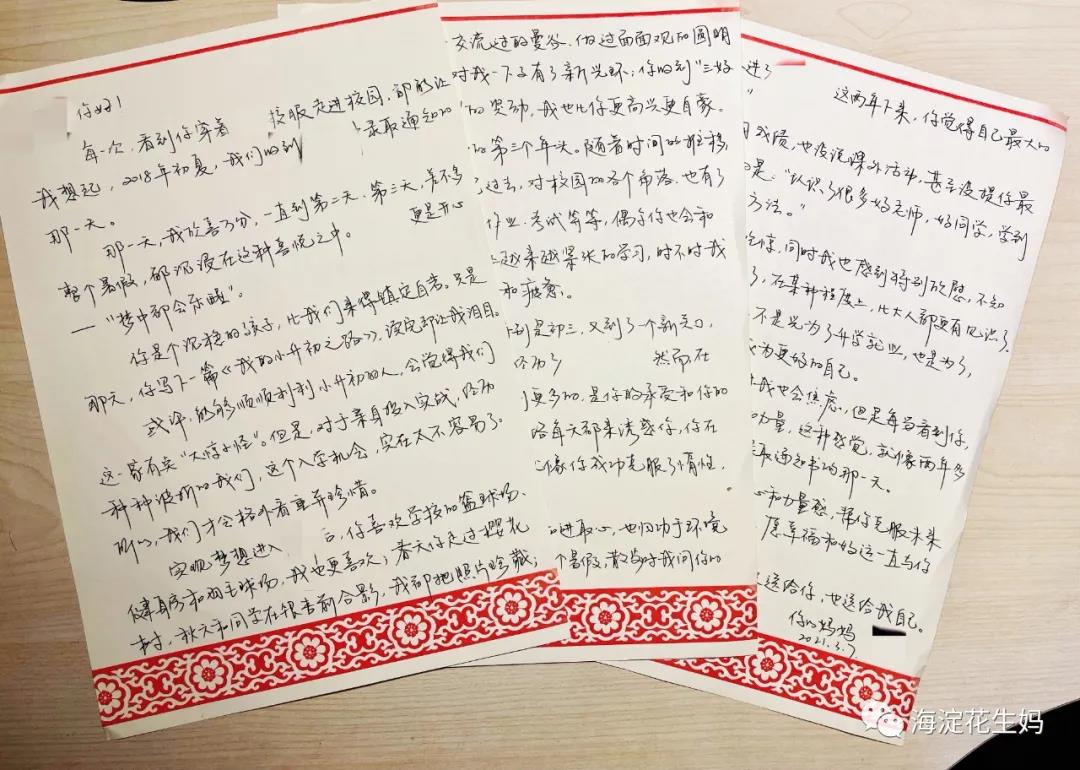 你好！
每一次，看到你穿着 校服走进校园，都能让
我想起，2018年初夏，我们收到 录取通知的
那一天。
那一天，我欣喜万分，一直到第二天、第三天，差不多
整个暑假，都沉浸在这种喜悦之中。 更是开心
—“梦中都会乐醒”。
你是个沉稳的孩子，比我们来得镇定自若。只是
那天，你写下一篇《我的小升初之路》，读完却让我泪目。
或许，能够顺顺利利小升初的人，会觉得我们
这一家有点“大惊小怪”。但是，对于亲身投入实战，经历
种种波折的我们，这个入学机会，实在太不容易了。
所以，我们才会格外看重并珍惜。
实现梦想进入 后，你喜欢学校的篮球场、
健身房和羽毛球场，我也更喜欢；春天你走过樱花
树，秋天和同学在银杏前合影，我都把照片珍藏；
交流过的曼谷、做过面面观的圆明
对我一下子有了新光环；你收到“三好
的奖励，我也比你更高兴更自豪。
的第三个年头。随着时间的推移，
过去，对校园的各个角落，也有了
作业、考试等等，偶尔你也会和
越来越紧张的学习，时不时我
和疲惫。
别是初三，又到了一个新关口，
经历了 然而在
更多的，是你的承受和你的
每天都来诱惑你，你在
像你成功克服了惰性，
的进取心，也归功于环境
个暑假，散步时我问你的
进了
”
这两年下来，你觉得自己最大的
成绩，也没说课外活动，甚至没提你最
的是：“认识了很多好老师，好同学，学到
方法。”
惊，同时我也感到特别欣慰，不知
了，在某种程度上，比大人都更有见识了。
不是光为了升学就业，也是为了，
成为更好的自己。
我也会焦虑，但是每当看到你，
力量，这种感觉，就像两年多
录取通知书的那一天。
和力量感，帮你克服未来
愿幸福和好运一直与你
送给你，也送给我自己。
你的妈妈
2021.3.7
海淀花生妈